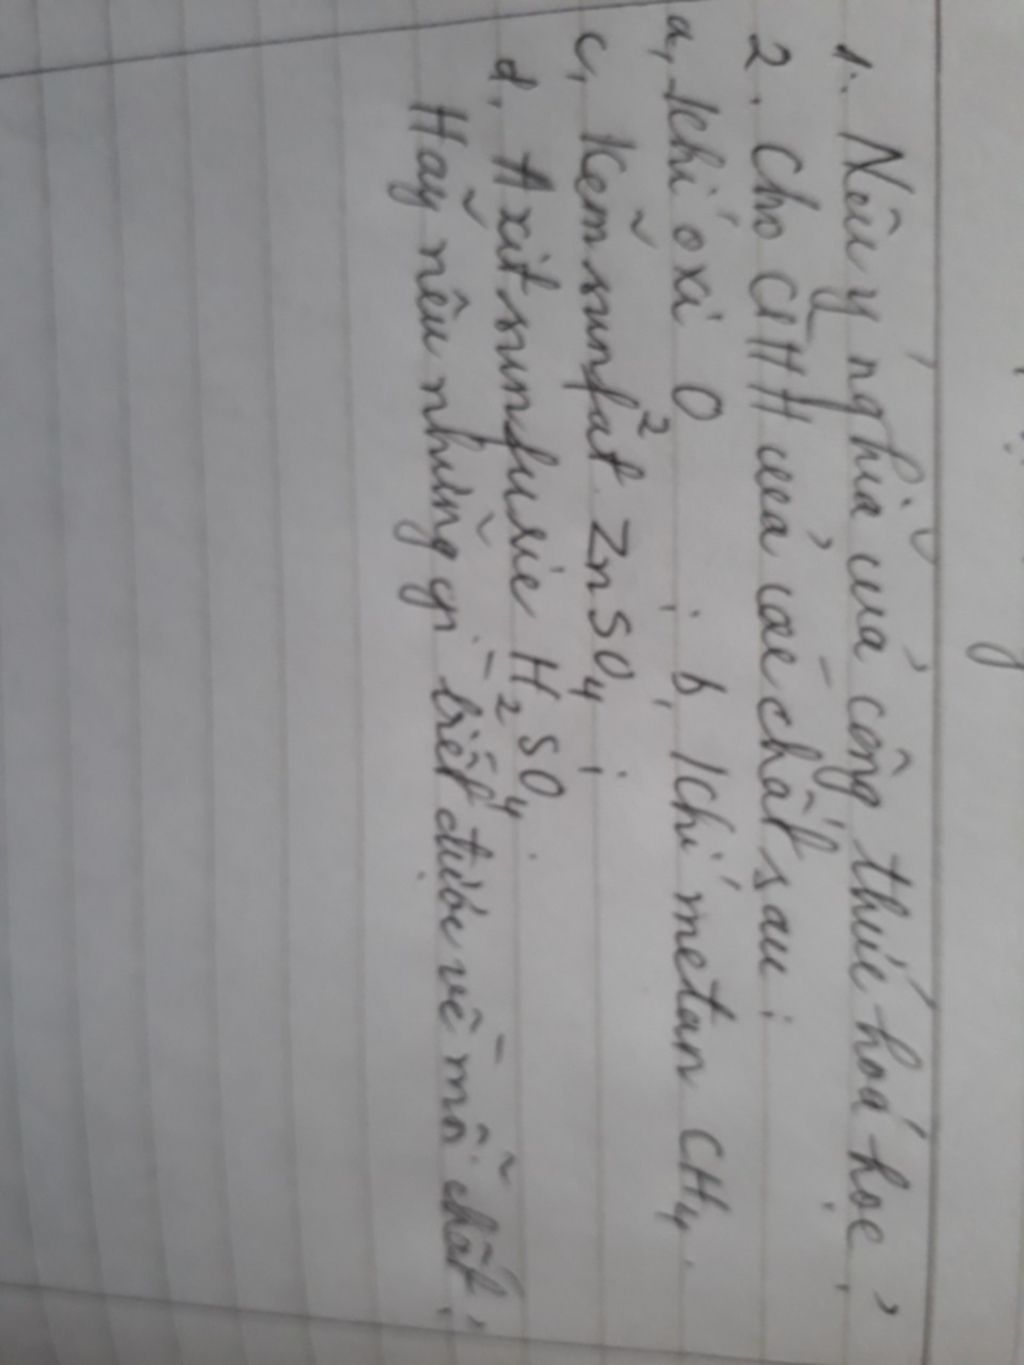 1. Nêu ý nghĩa của công thức hoá học?
2. Cho CTHH của các chất sau:
a, Khí oxi O2; b, Khí metan CH4.
c, Kẽm sunfat ZnSO4;
d, Axit sunfuric H2SO4.
Hãy nêu những gì biết được về mỗi chất!